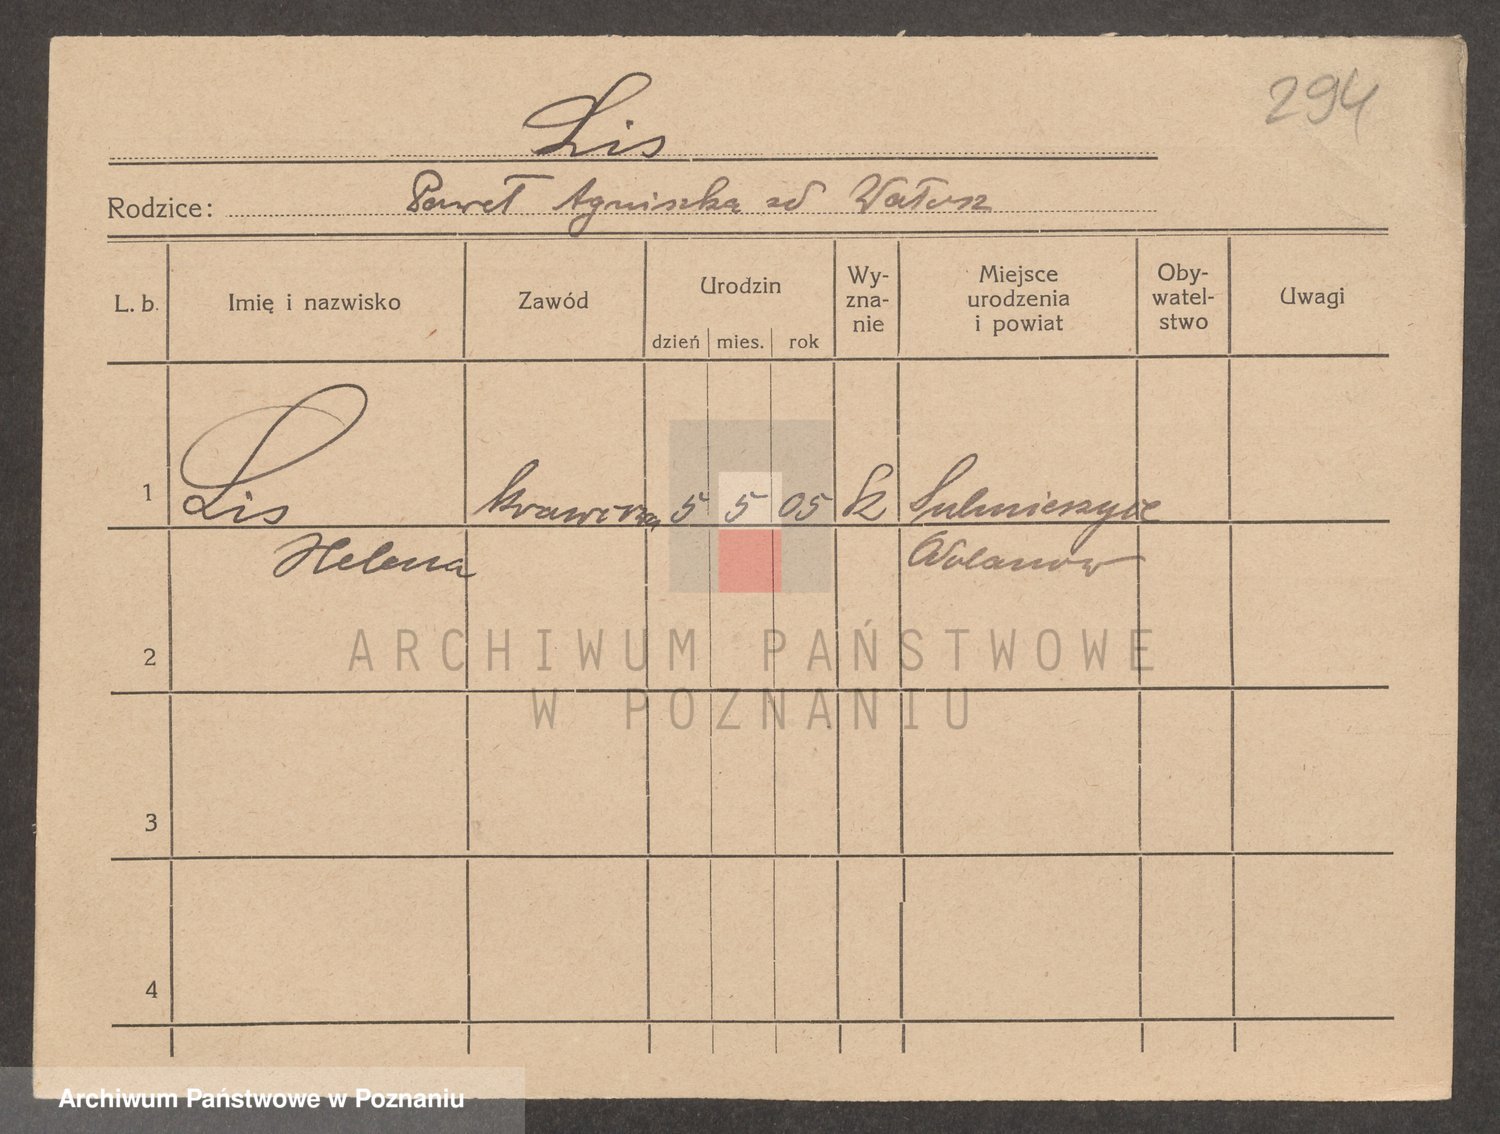 294
Lis
Rodzice: Paweł Agniszka zd Wałusz
L. b. Imię i nazwisko Zawód Urodzin dzień mies. rok Wy-zna-nie Miejsce urodzenia i powiat Oby-watel-stwo Uwagi
1 Lis 5 5 05 Sulmierzyce
Helena
2
3
4
ARCHIWUM PAŃSTWOWE
W POZNANIU
Archiwum Państwowe w Poznaniu